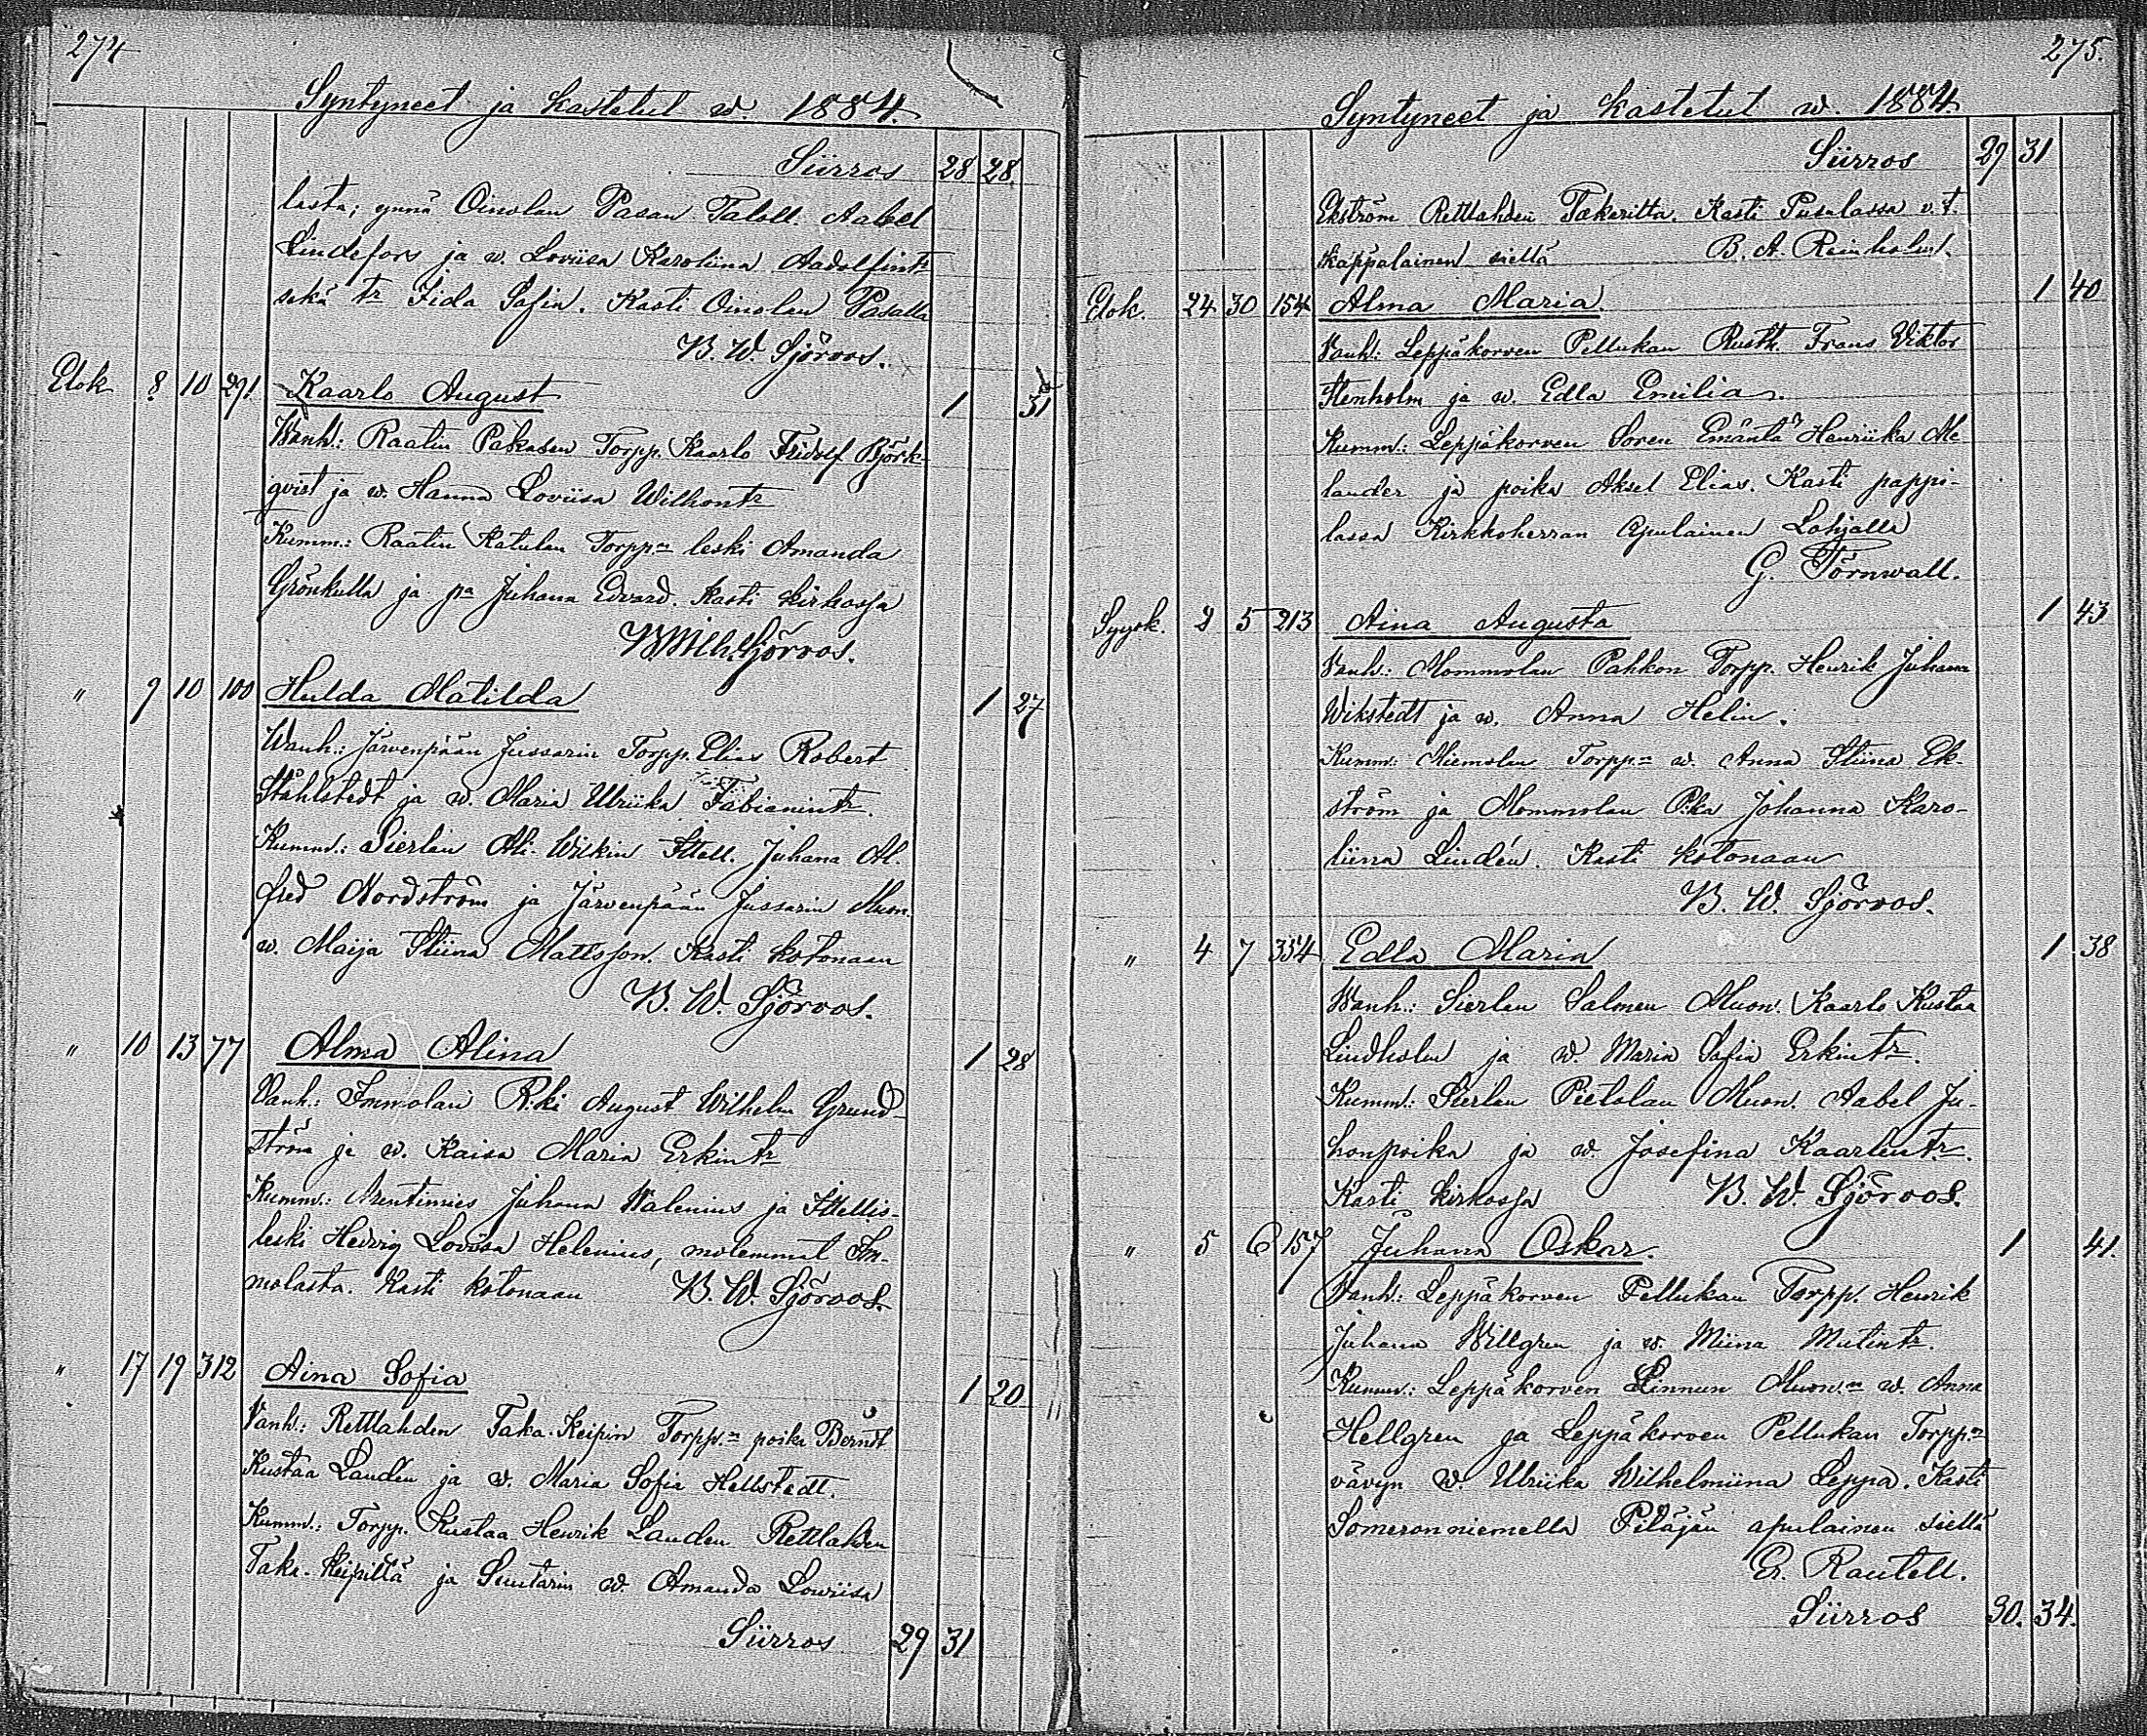 274
Syntyneet ja kastetut w. 1884.
Siirros 28 28
lasta; ynnä Oinolan Pasan Taloll. Aabel
Lindefors ja w. Loviisa Karoliina Aadolfintr
sekä tr Fida Sofia. Kasti Oinolan Pasalla
B. W. Sjöroos.
Elok 8 10 291 Kaarlo August 1 31
Wanh.: Raatin Pakasen Torpp. Kaarlo Fridolf Björk-
qvist ja w. Hanna Loviisa Wilhontr
Kumm.: Raatin Katulan Torpp:n leski Amanda
Grönkulla ja pa Juhana Edvard. Kasti kirkossa
B. Wilh. Sjöroos.
" 9 10 100 Hulda Matilda 1 27
Wanh.: Järvenpään Jussarin Torpp. Elias Robert
Ståhlstedt ja w. Maria Ulriika Fabianintr.
Kumm.: Sierlän Ali-Wilkin Itell. Juhana Al-
fred Nordström ja Järvenpään Jussarin Muon.
w. Maija Stiina Mattsson. Kasti kotonaan
B. W. Sjöroos.
" 10 13 77 Alma Alina 1 28
Vanh.: Immolan R:ki August Wilhelm Grund-
ström ja w. Kaisa Maria Erkintr
Kumm.: Arentimies Juhana Walenius ja Itellis-
leski Hedvig Lovisa Helenius, molemmat Im-
molasta. Kasti kotonaan B. W. Sjöroos.
" 17 19 312 Aina Sofia 1 20
Vanh.: Rettlahden Taka-Keipin Torpp.n poika Berndt
Kustaa Landén ja w. Maria Sofia Hellstedt.
Kumm.: Torpp. Kustaa Henrik Landen Rettlahden
Taka-Keipiltä ja Suutarin w. Amanda Lowiisa
Siirros 29 31
275.
Syntyneet ja kastetut w. 1884
Siirros 29 31
Ekström Rettlahden Takeritta. Kasti Pusulassa v.t.
kappalainen siellä B. A. Reinholm.
Elok. 24 30 154 Alma Maria 1 40
Vanh.: Leppäkorven Pellukan Rusth. Frans Viktor
Stenholm ja w. Edla Emilia.
Kumm.: Leppäkorven Soren Emäntä Henriika Me-
lander ja poika Aksel Elias. Kasti pappi-
lassa Kirkkoherran Apulainen Lohjalla
G. Törnwall.
Syysk. 2 5 213 Aina Augusta 1 43
Vanh.: Mommolan Pahkon Torpp. Henrik Juhana
Wikstedt ja w. Anna Helin.
Kumm: Niemolan Torpp:n w. Anna Stiina Ek-
ström ja Mommolan P:ka Johanna Karo-
liina Lindén. Kasti kotonaan
B. W. Sjöroos.
" 4 7 334 Edla Maria 1 38
Wanh.: Sierlan Salmen Muon. Kaarlo Kustaa
Lindholm ja w. Maria Sofia Erkintr.
Kumm.: Sierlan Pietolan Muon. Aabel Ju-
honpoika ja w. Josefina Kaarlentr.
Kasti kirkossa B. W. Sjöroos.
" 5 6 157 Juhana Oskar. 1 41.
Vanh.: Leppäkorven Pellukan Torpp. Henrik
Juhana Willgren ja w. Miina Matintr.
Kumm.: Leppäkorven Linnun Muon.n w. Anna
Hellgren ja Leppäkorven Pellukan Torpp.n
vävyn w. Ulriika Wilhelmiina Leppä. Kasti
Someronniemellä Pitäjän apulainen siellä
Er. Rautell.
Siirros 30. 34.